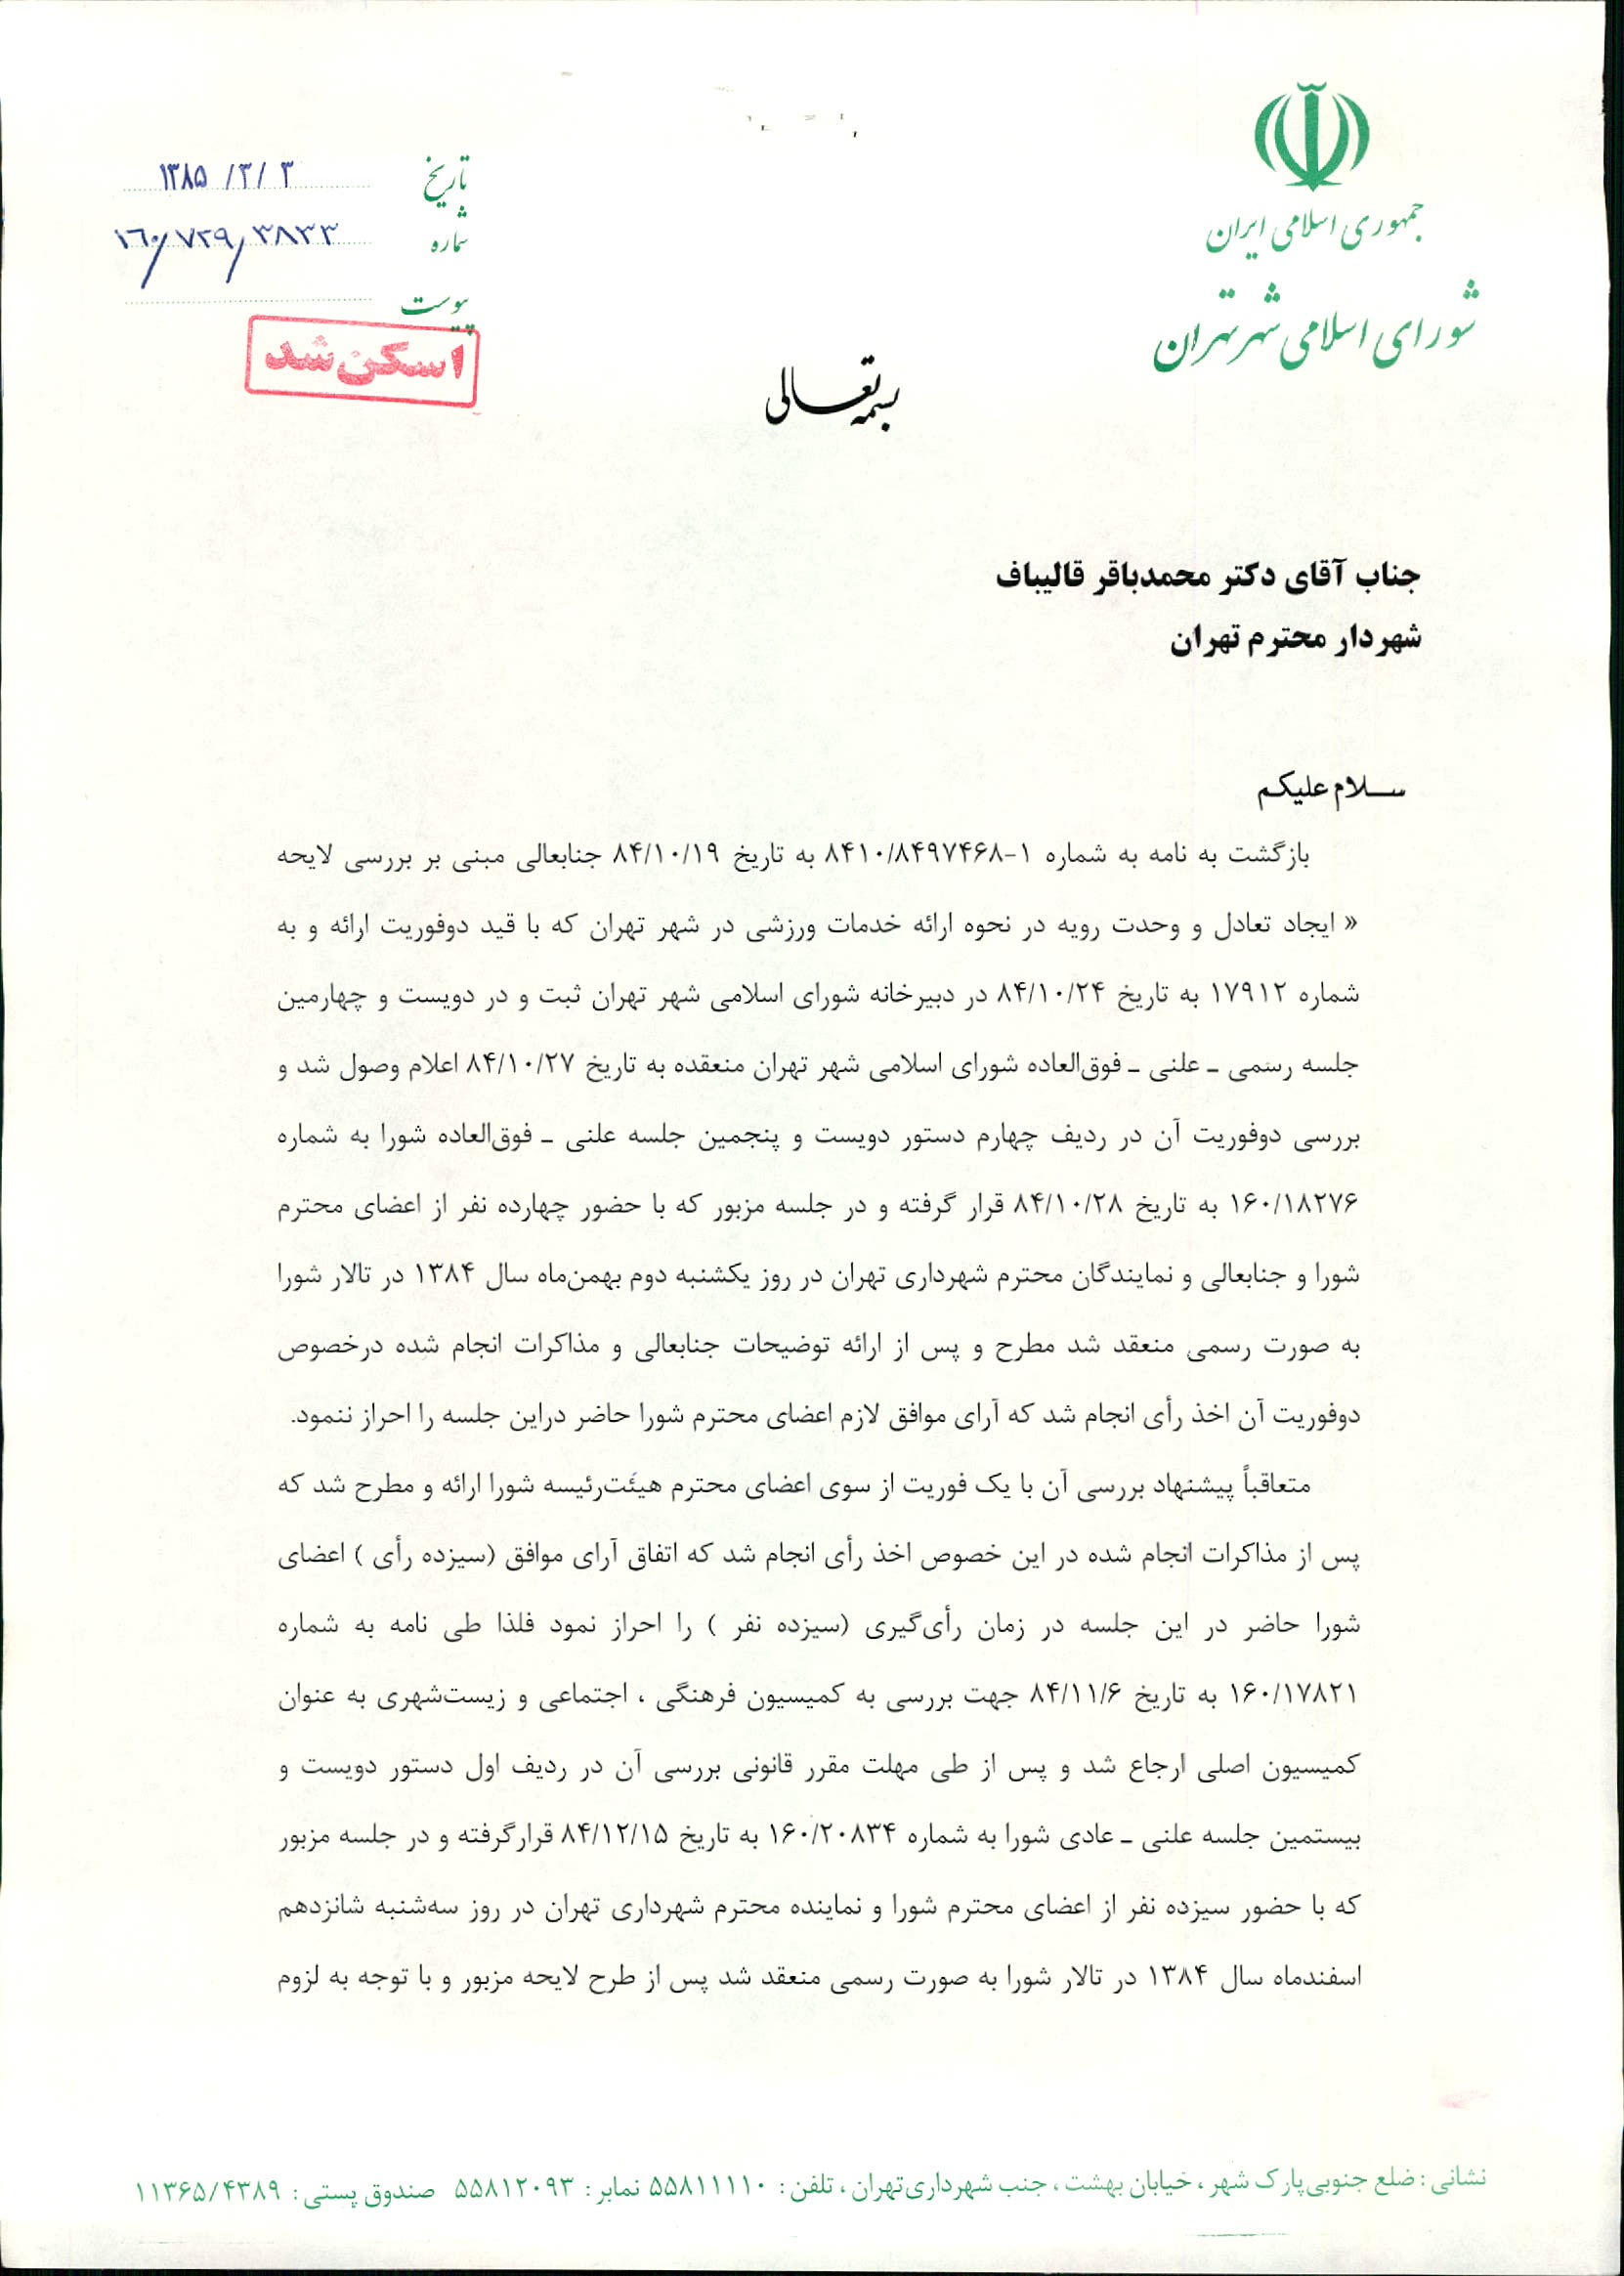 جمهوری اسلامی ایران
شورای اسلامی شهر تهران
تاریخ ۱۳۸۵/۳/۳
شماره ۱۶۰/۷۲۹/۳۸۳۳
پیوست
اسکن شد
بسمه تعالی
جناب آقای دکتر محمدباقر قالیباف
شهردار محترم تهران
سلام علیکم
بازگشت به نامه به شماره ۱-۸۴۱۰/۸۴۹۷۴۶۸ به تاریخ ۸۴/۱۰/۱۹ جنابعالی مبنی بر بررسی لایحه
« ایجاد تعادل و وحدت رویه در نحوه ارائه خدمات ورزشی در شهر تهران که با قید دوفوریت ارائه و به
شماره ۱۷۹۱۲ به تاریخ ۸۴/۱۰/۲۴ در دبیرخانه شورای اسلامی شهر تهران ثبت و در دویست و چهارمین
جلسه رسمی ـ علنی ـ فوق‌العاده شورای اسلامی شهر تهران منعقده به تاریخ ۸۴/۱۰/۲۷ اعلام وصول شد و
بررسی دوفوریت آن در ردیف چهارم دستور دویست و پنجمین جلسه علنی ـ فوق‌العاده شورا به شماره
۱۶۰/۱۸۲۷۶ به تاریخ ۸۴/۱۰/۲۸ قرار گرفته و در جلسه مزبور که با حضور چهارده نفر از اعضای محترم
شورا و جنابعالی و نمایندگان محترم شهرداری تهران در روز یکشنبه دوم بهمن‌ماه سال ۱۳۸۴ در تالار شورا
به صورت رسمی منعقد شد مطرح و پس از ارائه توضیحات جنابعالی و مذاکرات انجام شده درخصوص
دوفوریت آن اخذ رأی انجام شد که آرای موافق لازم اعضای محترم شورا حاضر دراین جلسه را احراز ننمود.
متعاقباً پیشنهاد بررسی آن با یک فوریت از سوی اعضای محترم هیئت‌رئیسه شورا ارائه و مطرح شد که
پس از مذاکرات انجام شده در این خصوص اخذ رأی انجام شد که اتفاق آرای موافق (سیزده رأی ) اعضای
شورا حاضر در این جلسه در زمان رأی‌گیری (سیزده نفر ) را احراز نمود فلذا طی نامه به شماره
۱۶۰/۱۷۸۲۱ به تاریخ ۸۴/۱۱/۶ جهت بررسی به کمیسیون فرهنگی ، اجتماعی و زیست‌شهری به عنوان
کمیسیون اصلی ارجاع شد و پس از طی مهلت مقرر قانونی بررسی آن در ردیف اول دستور دویست و
بیستمین جلسه علنی ـ عادی شورا به شماره ۱۶۰/۲۰۸۳۴ به تاریخ ۸۴/۱۲/۱۵ قرارگرفته و در جلسه مزبور
که با حضور سیزده نفر از اعضای محترم شورا و نماینده محترم شهرداری تهران در روز سه‌شنبه شانزدهم
اسفندماه سال ۱۳۸۴ در تالار شورا به صورت رسمی منعقد شد پس از طرح لایحه مزبور و با توجه به لزوم
نشانی : ضلع جنوبی‌پارک شهر ، خیابان بهشت ، جنب شهرداری‌تهران ، تلفن : ۵۵۸۱۱۱۱۰ نمابر : ۵۵۸۱۲۰۹۳ صندوق پستی : ۱۱۳۶۵/۴۳۸۹